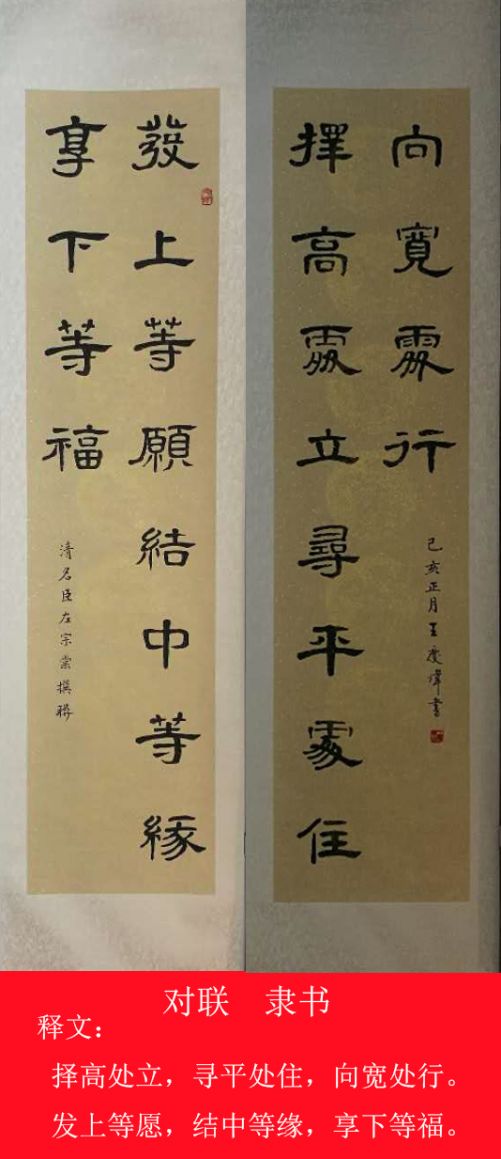 發上等願結中等緣
享下等福
清名臣左宗棠撰聯
擇高處立尋平處住
向寬處行
己亥正月王慶煒書
对联 隶书
释文：
择高处立，寻平处住，向宽处行。
发上等愿，结中等缘，享下等福。